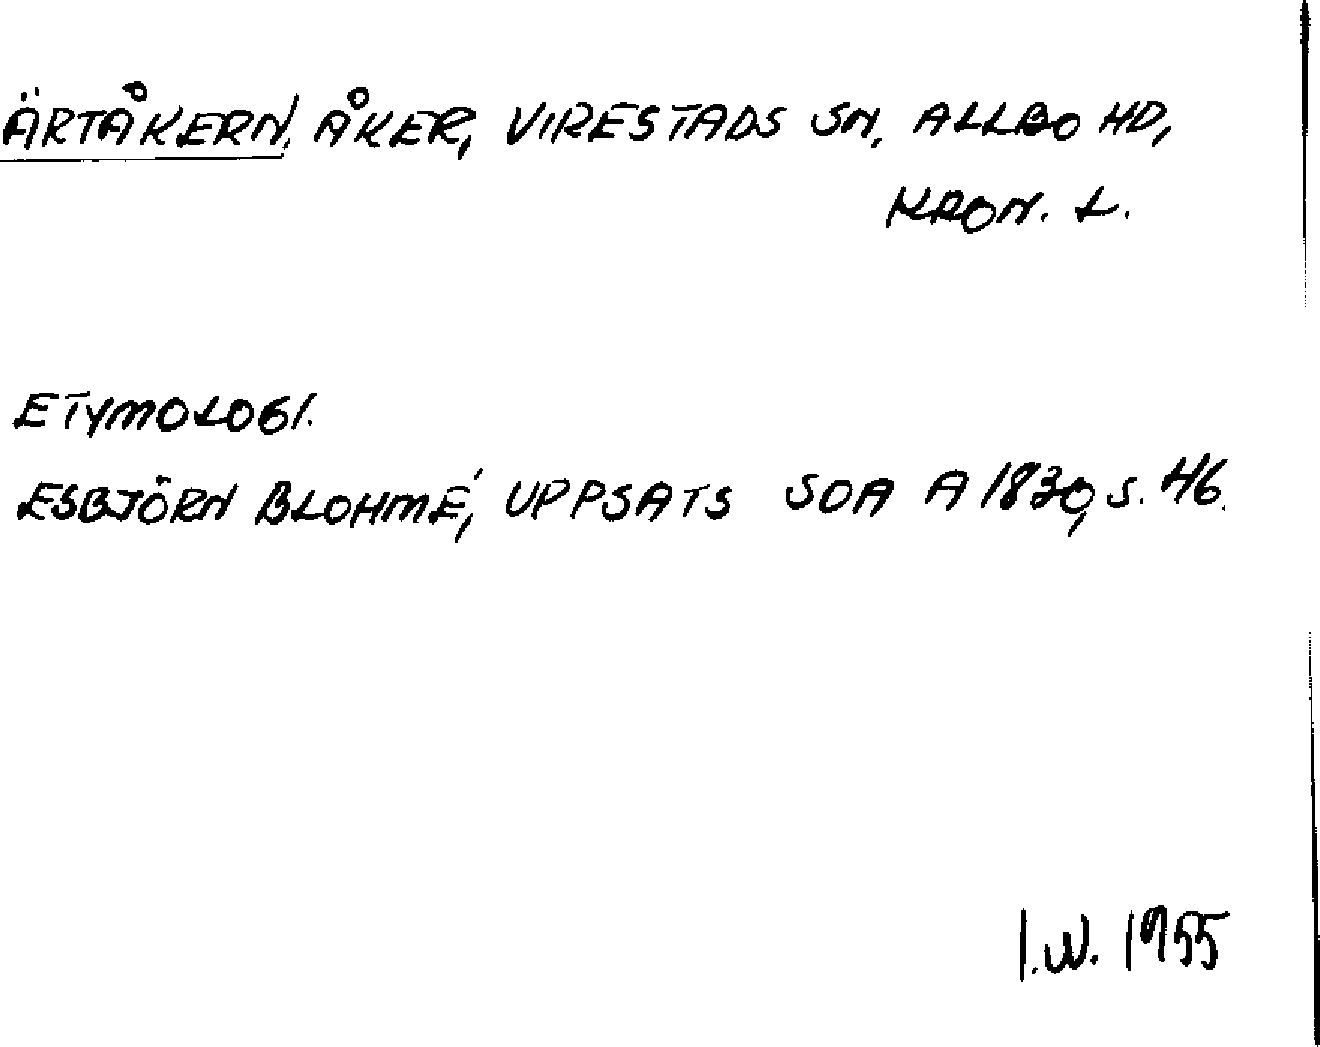 ÄRTÅKERN, ÅKER, VIRESTADS SN, ALLBO HD,
KRON. L.
ETYMOLOGI.
ESBJÖRN BLOHMÉ, UPPSATS SOA A 1830, S. 46.
I.W. 1955